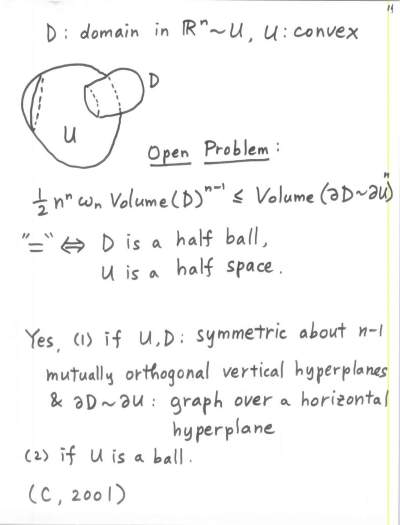 14
D : domain in ℝⁿ~U, U : convex
D
U
Open Problem :
½ nⁿ ωₙ Volume(D)ⁿ⁻¹ ≤ Volume(∂D~∂U)ⁿ
"=" ⇔ D is a half ball,
U is a half space.
Yes, (1) if U,D : symmetric about n-1
mutually orthogonal vertical hyperplanes
& ∂D~∂U : graph over a horizontal
hyperplane
(2) if U is a ball.
(C, 2001)